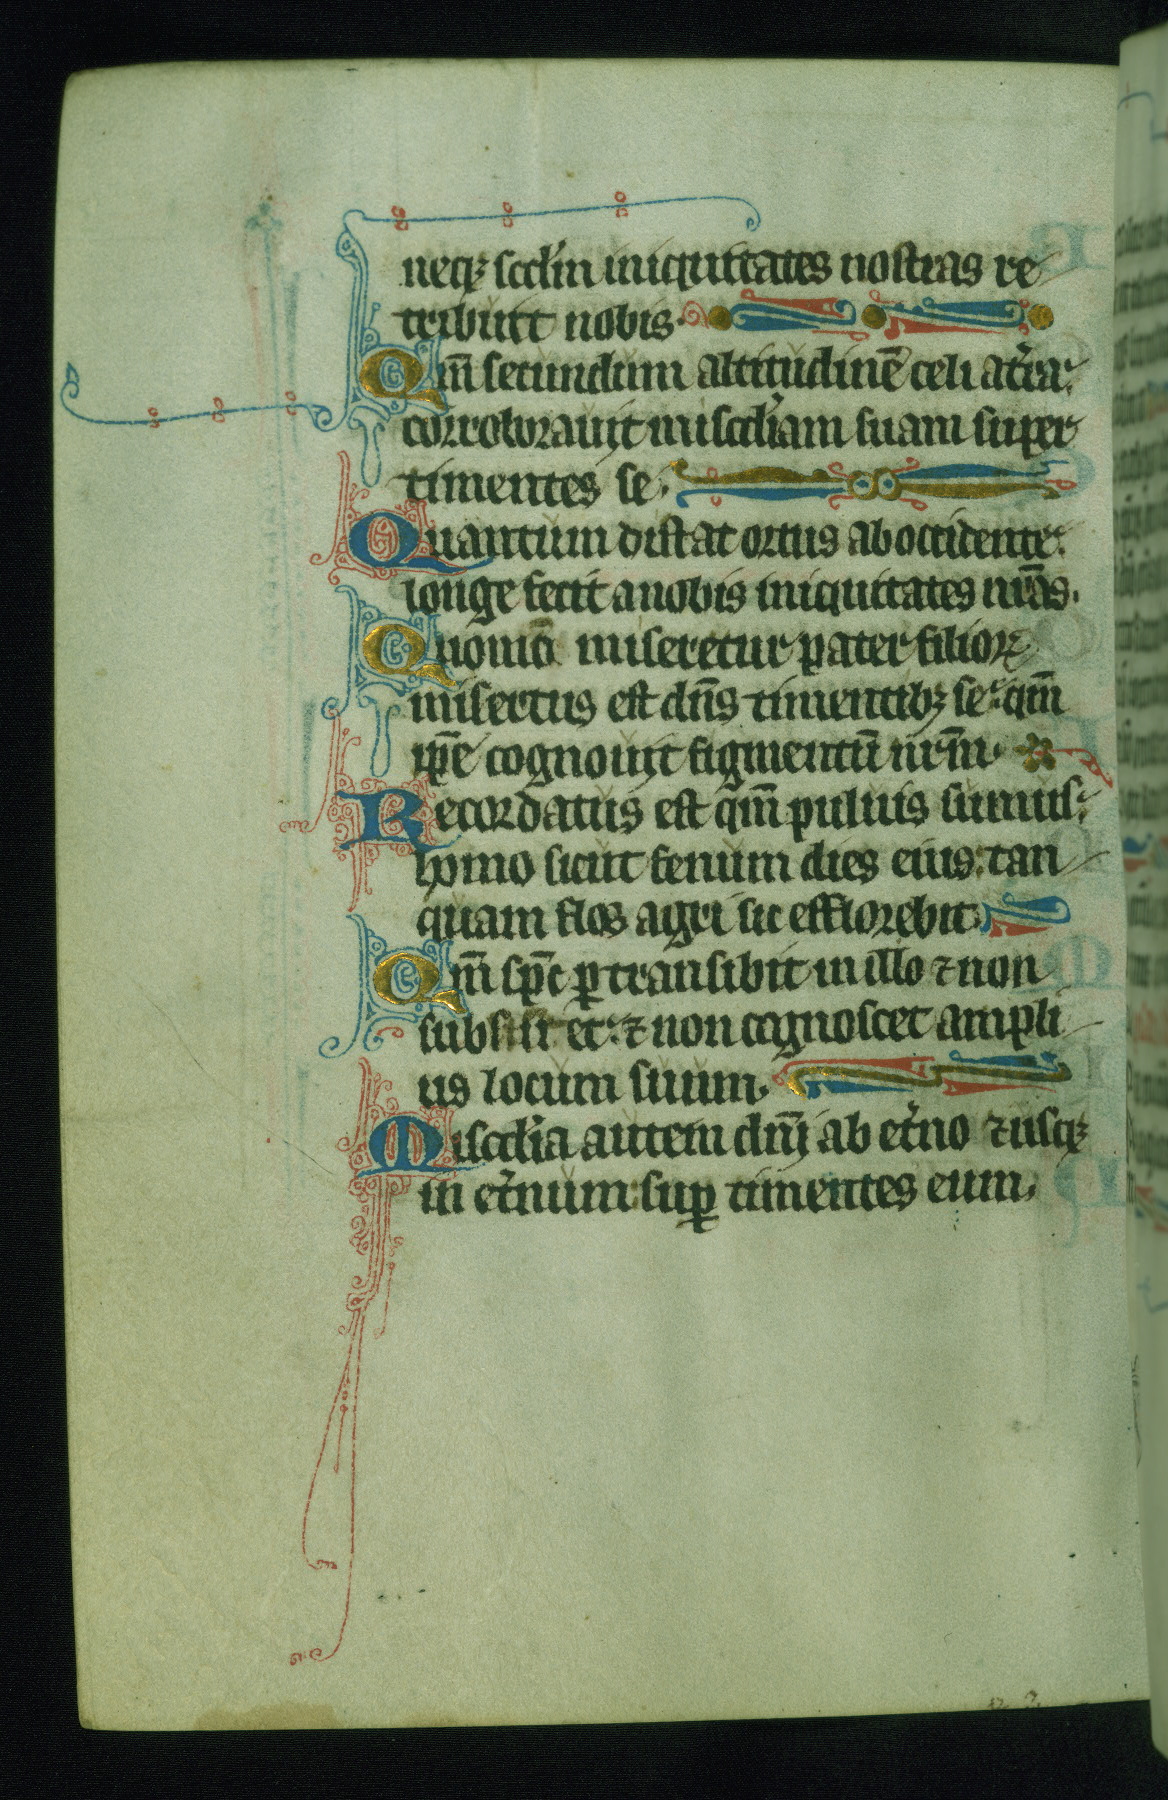 neqꝫ scd̃m iniquitates nostras re
tribuit nobis.
Qm̃ secundum altitudinẽ celi at̃ra:
corroborauit misc̃diam suam super
timentes se.
Quantum distat ortus ab occidente:
longe fecit anobis iniquitates nr̃as.
Quoniã miseretur pater filioꝝ
misertus est dñs timentibꝫ se: qm̃
ip̃e cognouit figmentũ nr̃m.
Recordatus est qm̃ puluis sumus:
homo sicut fenum dies eius: tan
quam flos agri sic efflorebit.
Qm̃ sp̃c ꝑtransibit in illo ⁊ non
subsistet: ⁊ non cognoscet ampli
us locum suum.
Misc̃dia autem dñi ab et̃no ⁊ usqꝫ
in et̃num: suꝑ timentes eum.